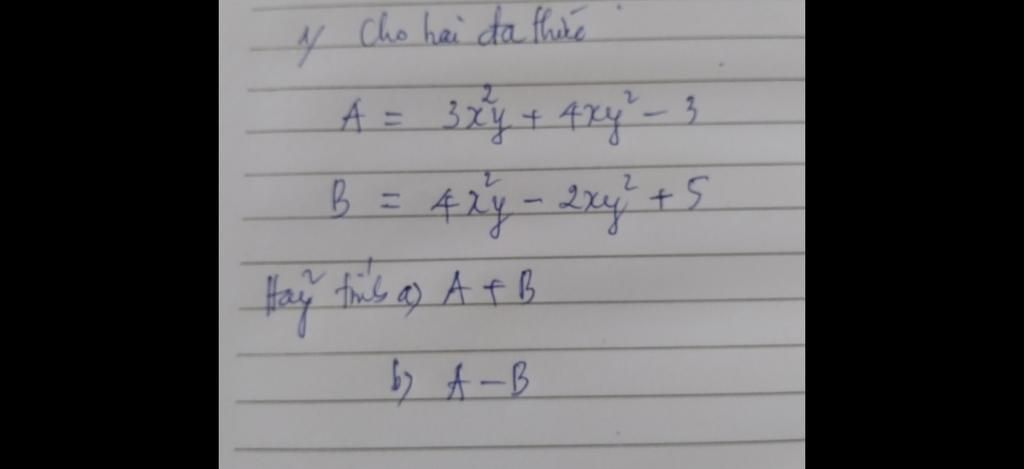 1/ Cho hai đa thức
A = 3x²y + 4xy² - 3
B = 4x²y - 2xy² + 5
Hãy tính a) A + B
b) A - B